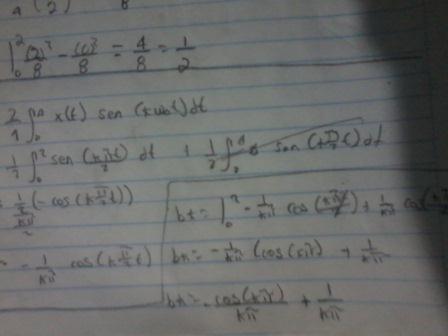 4 (2) 8
|₀² (2)²/8 - (0)²/8 = 4/8 = 1/2
2/4 ∫₀⁴ x(t) sen (kω₀t)dt
1/2 ∫₀² sen (kπt/2) dt + 1/2 ∫₂⁴ 0 sen (kπ/2 t) dt
(1/2)/(kπ/2) (-cos(kπ/2 t))
- 1/kπ cos(kπ/2 t)
bk = |₀² - 1/kπ cos (kπ2/2) + 1/kπ cos(
bk = - 1/kπ (cos(kπ) + 1/kπ
bk = - cos(kπ)/kπ + 1/kπ